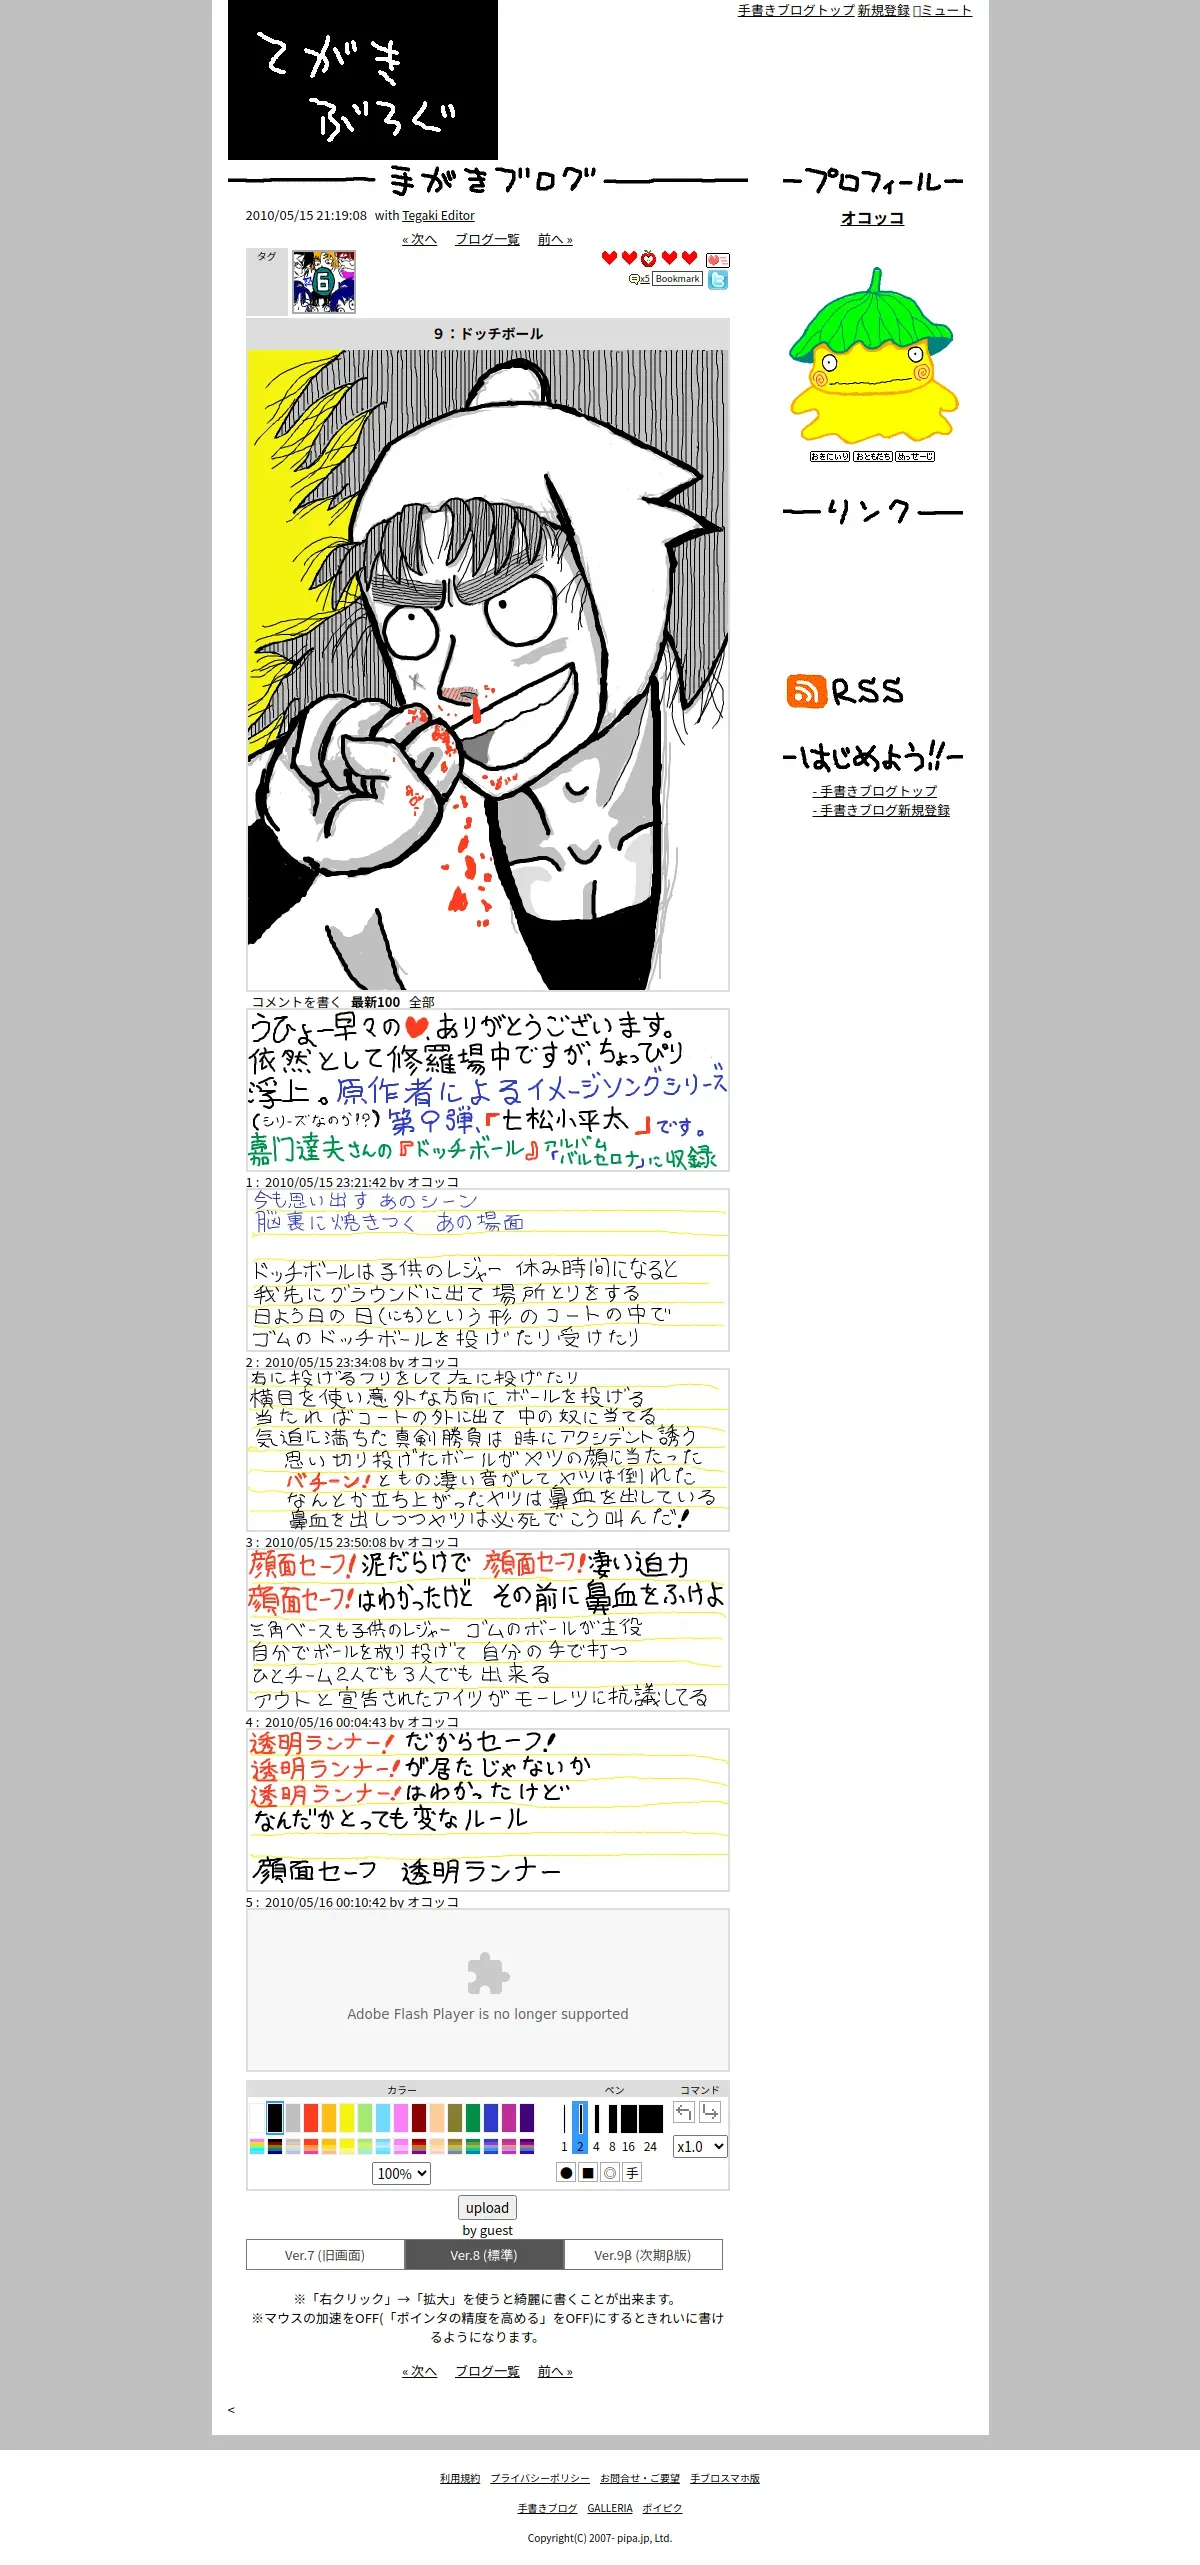 てがき
ぶろぐ
手書きブログトップ 新規登録 ミュート
手がきブログ
2010/05/15 21:19:08 with Tegaki Editor
« 次へ ブログ一覧 前へ »
タグ
6
x5 Bookmark
9：ドッチボール
コメントを書く 最新100 全部
うひょー早々の♥、ありがとうございます。
依然として修羅場中ですが、ちょっぴり
浮上。原作者によるイメージソングシリーズ
(シリーズなのか!?) 第9弾、「七松小平太」です。
嘉門達夫さんの『ドッチボール』アルバム「バルセロナ」に収録
1 : 2010/05/15 23:21:42 by オコッコ
今も思い出す あのシーン
脳裏に焼きつく あの場面
ドッチボールは子供のレジャー 休み時間になると
我先にグラウンドに出て 場所とりをする
日よう日の 日(にち)という形のコートの中で
ゴムのドッチボールを投げたり受けたり
2 : 2010/05/15 23:34:08 by オコッコ
右に投げるフリをして左に投げたり
横目を使い意外な方向にボールを投げる
当たればコートの外に出て 中の奴に当てる
気迫に満ちた真剣勝負は 時にアクシデント誘う
思い切り投げたボールがヤツの顔に当たった
バチーン!ともの凄い音がしてヤツは倒れた
なんとか立ち上がったヤツは鼻血を出している
鼻血を出しつつヤツは必死でこう叫んだ!
3 : 2010/05/15 23:50:08 by オコッコ
顔面セーフ!泥だらけで 顔面セーフ!凄い迫力
顔面セーフ!はわかったけど その前に鼻血をふけよ
三角ベースも子供のレジャー ゴムのボールが主役
自分でボールを放り投げて 自分の手で打つ
ひとチーム2人でも3人でも出来る
アウトと宣告されたアイツがモーレツに抗議してる
4 : 2010/05/16 00:04:43 by オコッコ
透明ランナー!だからセーフ!
透明ランナー!が居たじゃないか
透明ランナー!はわかったけど
なんだかとっても変なルール
顔面セーフ 透明ランナー
5 : 2010/05/16 00:10:42 by オコッコ
Adobe Flash Player is no longer supported
カラー ペン コマンド
1 2 4 8 16 24
x1.0
100%
● ■ ◎ 手
upload
by guest
Ver.7 (旧画面) Ver.8 (標準) Ver.9β (次期β版)
※「右クリック」→「拡大」を使うと綺麗に書くことが出来ます。
※マウスの加速をOFF(「ポインタの精度を高める」をOFF)にするときれいに書け
るようになります。
« 次へ ブログ一覧 前へ »
<
プロフィール
オコッコ
おきにいり おともだち めっせーじ
リンク
RSS
はじめよう!!
- 手書きブログトップ
- 手書きブログ新規登録
利用規約 プライバシーポリシー お問合せ・ご要望 手ブロスマホ版
手書きブログ GALLERIA ポイピク
Copyright(C) 2007- pipa.jp, Ltd.